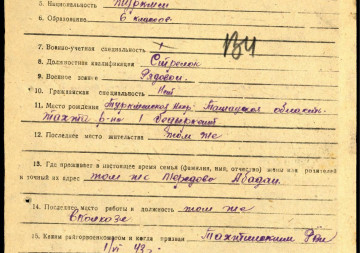 5. Национальность туркмен
6. Образование 6 классов.
7. Военно-учетная специальность
ВЧ
8. Должностная квалификация Стрелок
9. Военное звание Рядовой
10. Гражданская специальность нет
11. Место рождения Туркменская Ташаузская область
Тахта р-но 1
12. Последнее место жительства там же
13. Где проживает в настоящее время семья (фамилия, имя, отчество) жены или родителей
и точный их адрес там же Абадан
14. Последнее место работы и должность там же
в колхозе
15. Каким райгорвоенкоматом и когда призван Тахтинским РВК